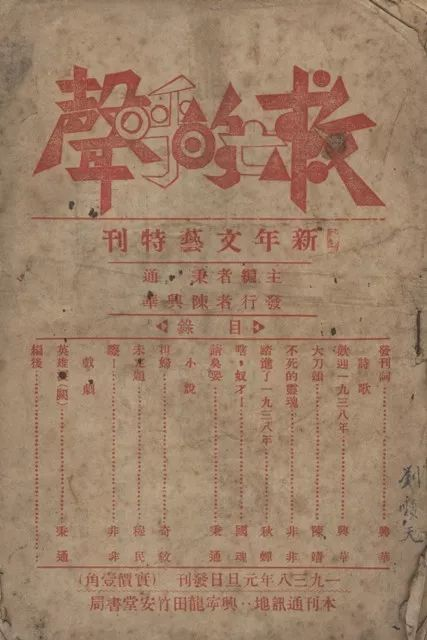 救亡的呼聲
新年文藝特刊
主編者秉通
發行者陳興華
目錄
發刊詞……興華
詩歌
歡迎一九三八年……興華
大刀頌……陳靖
不死的靈魂……非非
踏進了一九三八年……秋蟬
奴才!……國魂
……秉通
小說
歸……奇
未完題……程民
!……非非
戲劇
英雄(闕)……秉通
編後……
一九三八年元旦日發刊(實價壹角)
本刊通訊地:興寧龍田竹安堂書局
劉